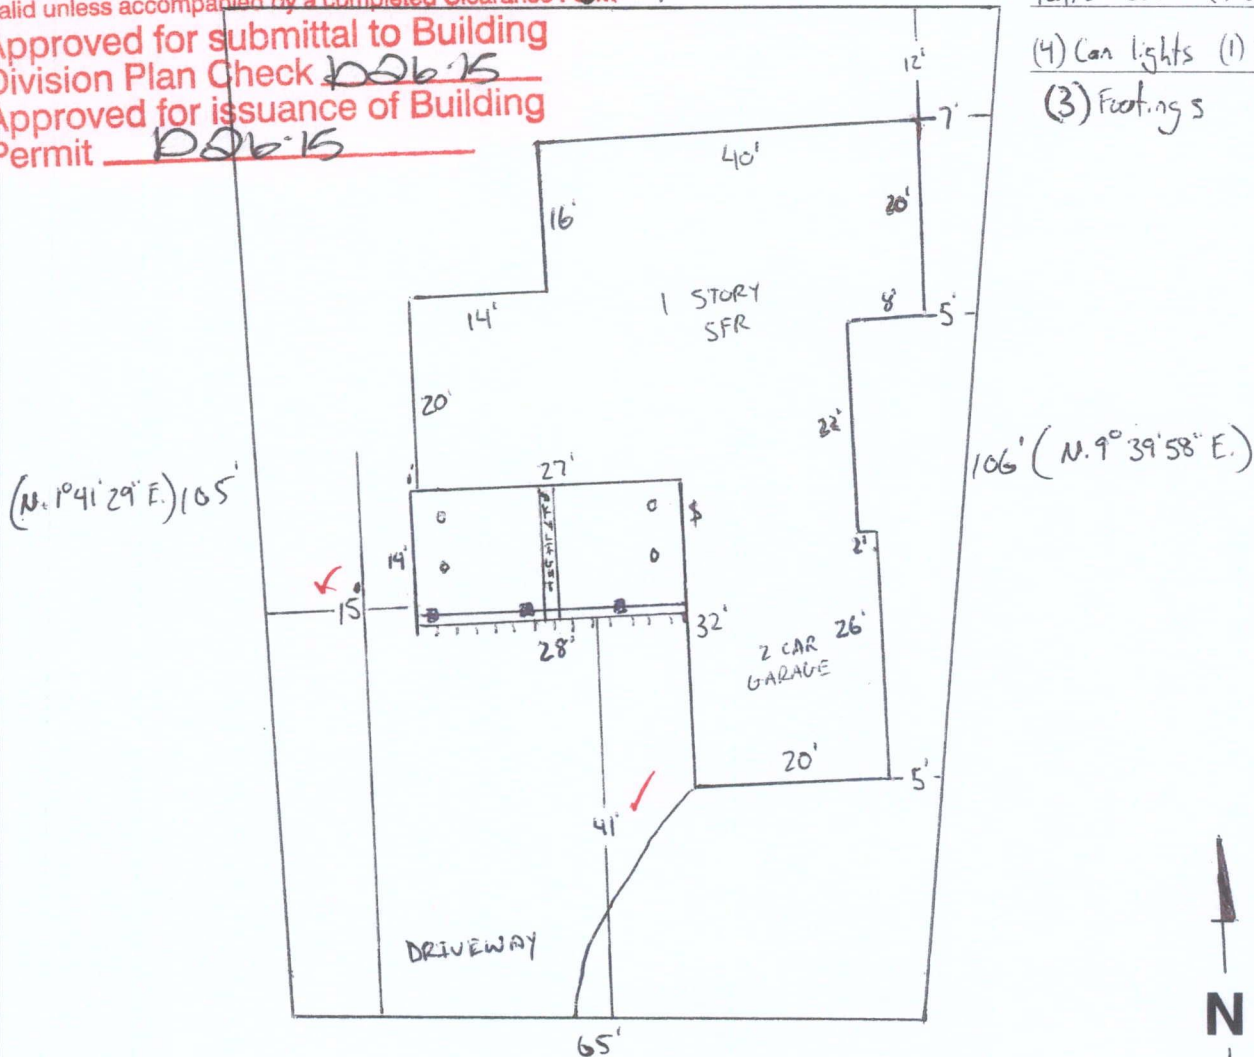 alid unless accompanied by a completed Clearance Form
Approved for submittal to Building
Division Plan Check
Approved for issuance of Building
Permit
(4) Can lights (1)
(3) Footings
12'
7'
40'
16'
20'
1 STORY
SFR
8'
5'
14'
20'
22'
106' (N. 9° 39' 58" E.)
(N. 1° 41' 29" E.) 105'
27'
$
14'
2'
15'
32'
28'
26'
2 CAR
GARAGE
20'
5'
41'
DRIVEWAY
N
65'